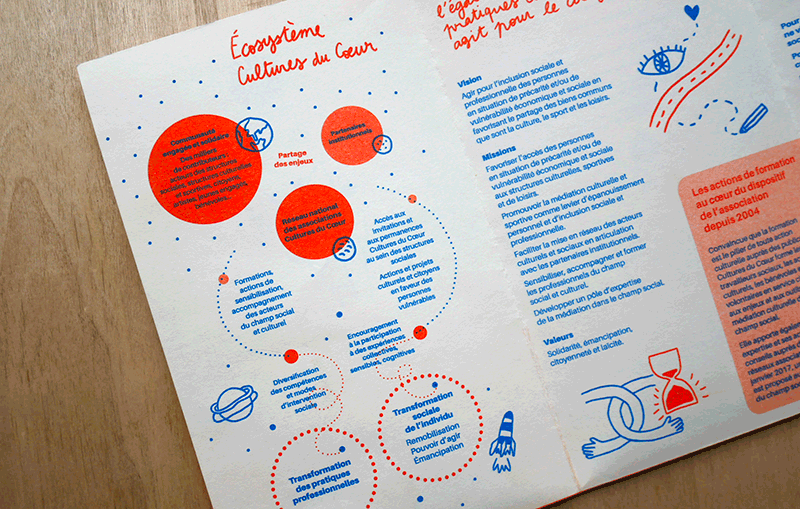 Écosystème
Cultures du Cœur
Communauté
engagée et solidaire
Des milliers
de contributeurs :
acteurs des structures
sociales, structures culturelles
et sportives, citoyens,
artistes, jeunes engagés,
bénévoles...
Partenaires
institutionnels
Partage
des enjeux
Réseau national
des associations
Cultures du Cœur
Accès aux
invitations et
aux permanences
Cultures du Cœur
au sein des structures
sociales
Actions et projets
culturels et citoyens
en faveur des
personnes
vulnérables
Formations,
actions de
sensibilisation,
accompagnement
des acteurs
du champ social
et culturel
Encouragement
à la participation
à des expériences
collectives,
sensibles, cognitives
Diversification
des compétences
et modes
d'intervention
sociale
Transformation
sociale
de l'individu
Remobilisation
Pouvoir d'agir
Émancipation
Transformation
des pratiques
professionnelles
pratiques
agit pour le
Vision
Agir pour l'inclusion sociale et
professionnelle des personnes
en situation de précarité et/ou de
vulnérabilité économique et sociale en
favorisant le partage des biens communs
que sont la culture, le sport et les loisirs.
Missions
Favoriser l'accès des personnes
en situation de précarité et/ou de
vulnérabilité économique et sociale
aux structures culturelles, sportives
et de loisirs.
Promouvoir la médiation culturelle et
sportive comme levier d'épanouissement
personnel et d'inclusion sociale et
professionnelle.
Faciliter la mise en réseau des acteurs
culturels et sociaux en articulation
avec les partenaires institutionnels.
Sensibiliser, accompagner et former
les professionnels du champ
social et culturel.
Développer un pôle d'expertise
de la médiation dans le champ social.
Valeurs
Solidarité, émancipation,
citoyenneté et laïcité.
Les actions de formation
au cœur du dispositif
de l'association
depuis 2004
Convaincue que la formation
est le pilier de toute action
culturelle auprès des publics
Cultures du Cœur forme
travailleurs sociaux, les
culturels, les bénévoles
volontaires en service
aux enjeux et aux outils
médiation culturelle
champ social.
Elle apporte également
expertise et ses
conseils auprès
réseaux associatifs
janvier 2017, un
est proposé
du champ social